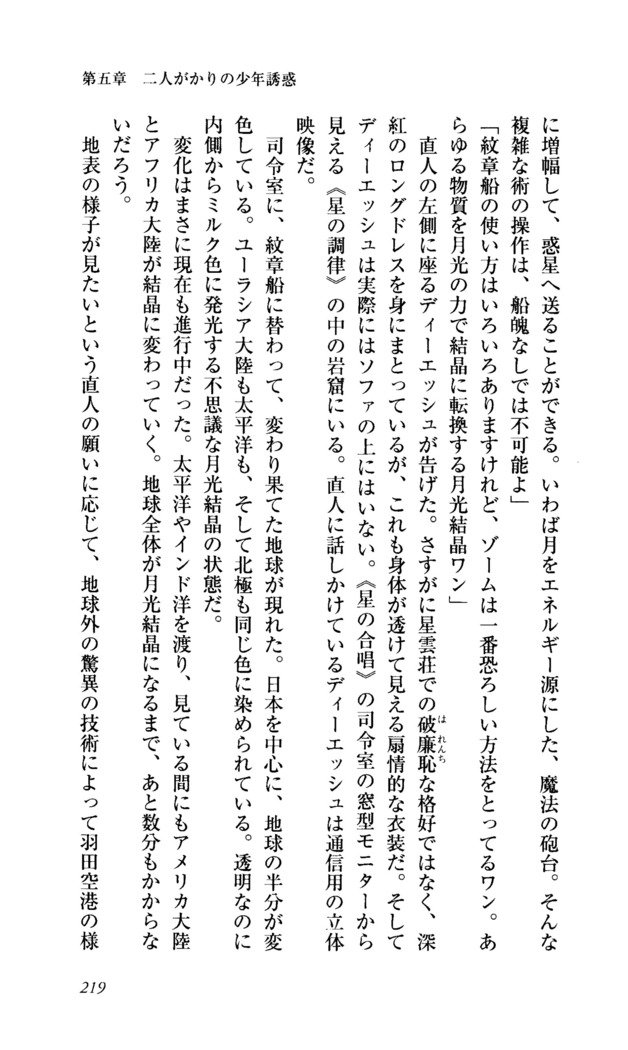 第五章　二人がかりの少年誘惑
に増幅して、惑星へ送ることができる。いわば月をエネルギー源にした、魔法の砲台。そんな
複雑な術の操作は、船魄なしでは不可能よ」
「紋章船の使い方はいろいろありますけれど、ゾームは一番恐ろしい方法をとってるワン。あ
らゆる物質を月光の力で結晶に転換する月光結晶ワン」
　直人の左側に座るディーエッシュが告げた。さすがに星雲荘での破廉恥な格好ではなく、深
紅のロングドレスを身にまとっているが、これも身体が透けて見える扇情的な衣装だ。そして
ディーエッシュは実際にはソファの上にはいない。《星の合唱》の司令室の窓型モニターから
見える《星の調律》の中の岩窟にいる。直人に話しかけているディーエッシュは通信用の立体
映像だ。
　司令室に、紋章船に替わって、変わり果てた地球が現れた。日本を中心に、地球の半分が変
色している。ユーラシア大陸も太平洋も、そして北極も同じ色に染められている。透明なのに
内側からミルク色に発光する不思議な月光結晶の状態だ。
　変化はまさに現在も進行中だった。太平洋やインド洋を渡り、見ている間にもアメリカ大陸
とアフリカ大陸が結晶に変わっていく。地球全体が月光結晶になるまで、あと数分もかからな
いだろう。
　地表の様子が見たいという直人の願いに応じて、地球外の驚異の技術によって羽田空港の様
219